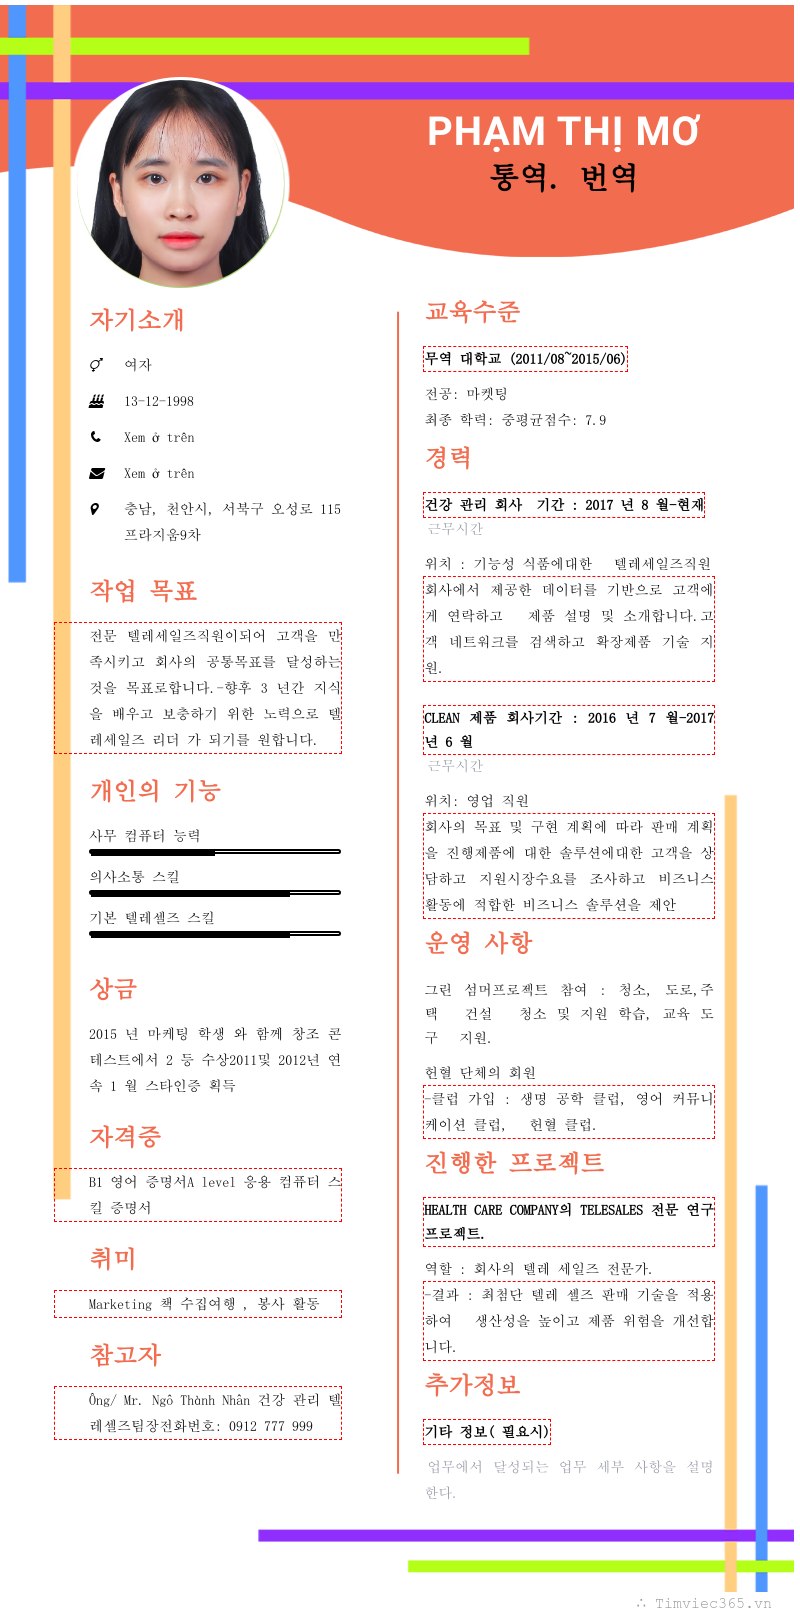 PHẠM THỊ MƠ
통역. 번역
자기소개
여자
13-12-1998
Xem ở trên
Xem ở trên
충남, 천안시, 서북구 오성로 115
프라지움9차
작업 목표
전문 텔레세일즈직원이되어 고객을 만
족시키고 회사의 공통목표를 달성하는
것을 목표로합니다.-향후 3 년간 지식
을 배우고 보충하기 위한 노력으로 텔
레세일즈 리더 가 되기를 원합니다.
개인의 기능
사무 컴퓨터 능력
의사소통 스킬
기본 텔레셀즈 스킬
상금
2015 년 마케팅 학생 와 함께 창조 콘
테스트에서 2 등 수상2011및 2012년 연
속 1 월 스타인증 획득
자격증
B1 영어 증명서A level 응용 컴퓨터 스
킬 증명서
취미
Marketing 책 수집여행 , 봉사 활동
참고자
Ông/ Mr. Ngô Thành Nhân 건강 관리 텔
레셀즈팀장전화번호: 0912 777 999
교육수준
무역 대학교 (2011/08~2015/06)
전공: 마켓팅
최종 학력: 중평균점수: 7.9
경력
건강 관리 회사 기간 : 2017 년 8 월-현재
근무시간
위치 : 기능성 식품에대한 텔레세일즈직원
회사에서 제공한 데이터를 기반으로 고객에
게 연락하고 제품 설명 및 소개합니다.고
객 네트워크를 검색하고 확장제품 기술 지
원.
CLEAN 제품 회사기간 : 2016 년 7 월-2017
년 6 월
근무시간
위치: 영업 직원
회사의 목표 및 구현 계획에 따라 판매 계획
을 진행제품에 대한 솔루션에대한 고객을 상
담하고 지원시장수요를 조사하고 비즈니스
활동에 적합한 비즈니스 솔루션을 제안
운영 사항
그린 섬머프로젝트 참여 : 청소, 도로,주
택 건설 청소 및 지원 학습, 교육 도
구 지원.
헌혈 단체의 회원
-클럽 가입 : 생명 공학 클럽, 영어 커뮤니
케이션 클럽, 헌혈 클럽.
진행한 프로젝트
HEALTH CARE COMPANY의 TELESALES 전문 연구
프로젝트.
역할 : 회사의 텔레 세일즈 전문가.
-결과 : 최첨단 텔레 셀즈 판매 기술을 적용
하여 생산성을 높이고 제품 위험을 개선합
니다.
추가정보
기타 정보( 필요시)
업무에서 달성되는 업무 세부 사항을 설명
한다.
∴ Timviec365.vn